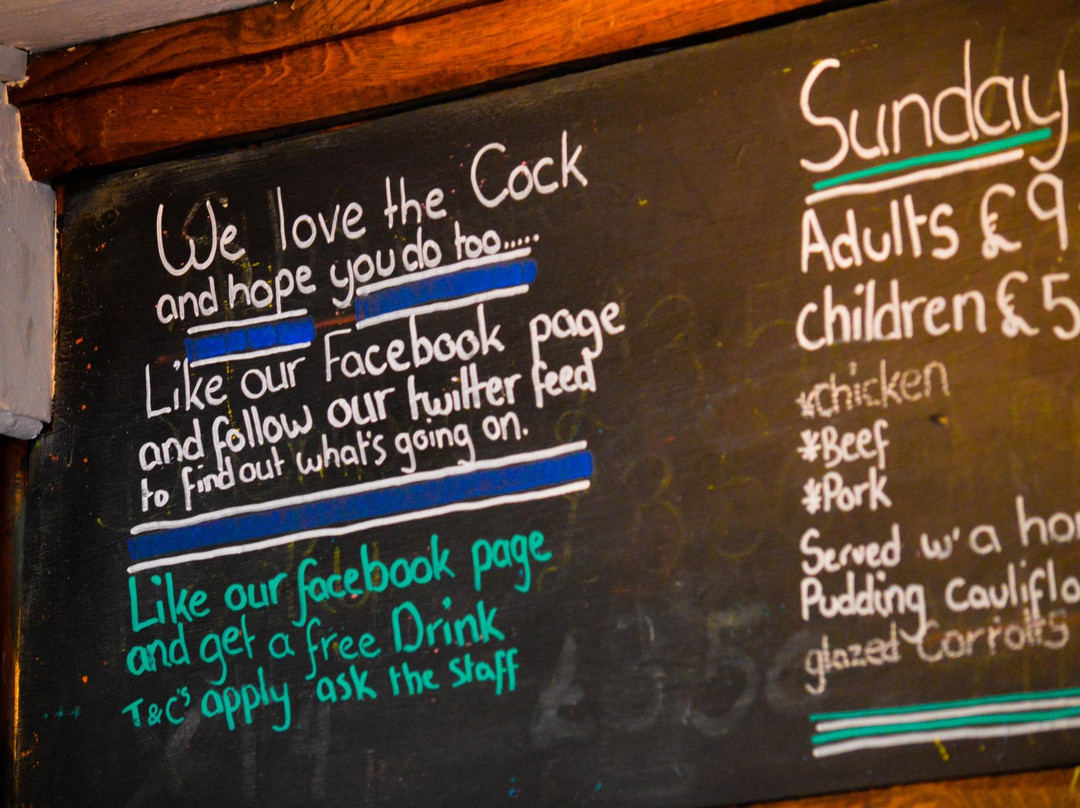 We love the Cock
and hope you do too.....
Like our Facebook page
and follow our twitter feed
to find out what's going on.
Like our facebook page
and get a free Drink
T&C's apply ask the staff
Sunday
Adults £9
children £5
*chicken
*Beef
*Pork
Served w' a ho
Pudding cauliflo
glazed Corrotts